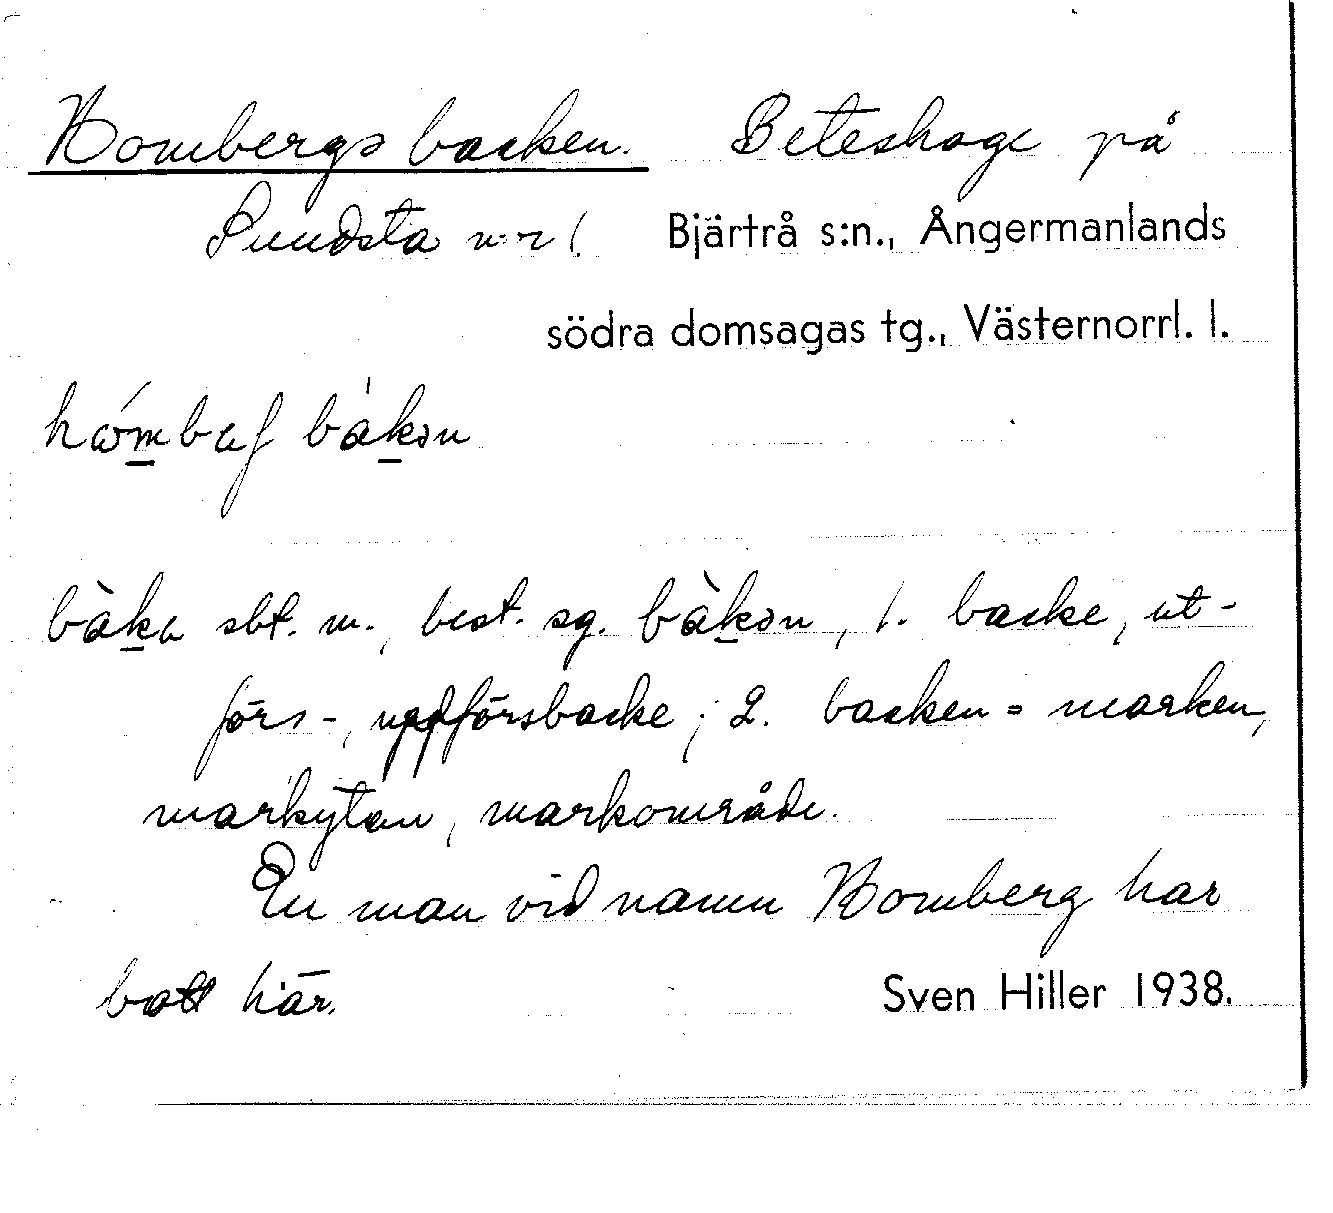 Hombergsbacken. Beteshage på
Sundsta nr 1. Bjärtrå s:n., Ångermanlands
södra domsagas tg., Västernorrl. l.
bàka sbt. m., best. sg. bàkən, 1. backe, ut-
förs-, uppförsbacke; 2. backen = marken,
markytan, markområde.
En man vid namn Homberg har
bott här. Sven Hiller 1938.